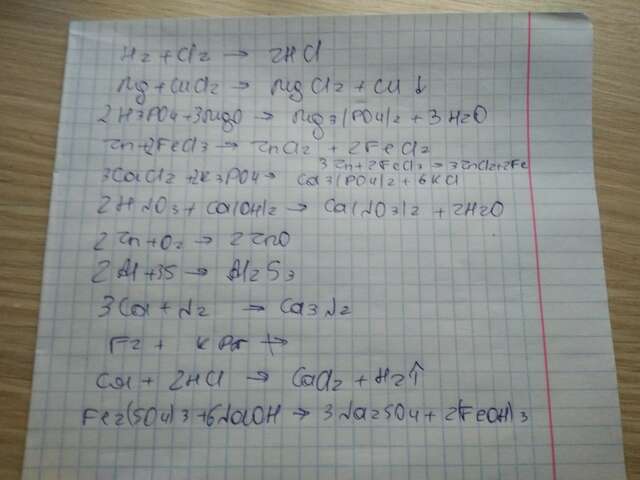 H2 + Cl2 → 2HCl
Mg + CuCl2 → MgCl2 + Cu ↓
2H3PO4 + 3MgO → Mg3(PO4)2 + 3H2O
Zn + 2FeCl3 → ZnCl2 + 2FeCl2
3Zn + 2FeCl3 → 3ZnCl2 + 2Fe
3CaCl2 + 2K3PO4 → Ca3(PO4)2 + 6KCl
2HNO3 + Ca(OH)2 → Ca(NO3)2 + 2H2O
2Zn + O2 → 2ZnO
2Al + 3S → Al2S3
3Ca + N2 → Ca3N2
F2 + KBr ↛
Ca + 2HCl → CaCl2 + H2↑
Fe2(SO4)3 + 6NaOH → 3Na2SO4 + 2(FeOH)3